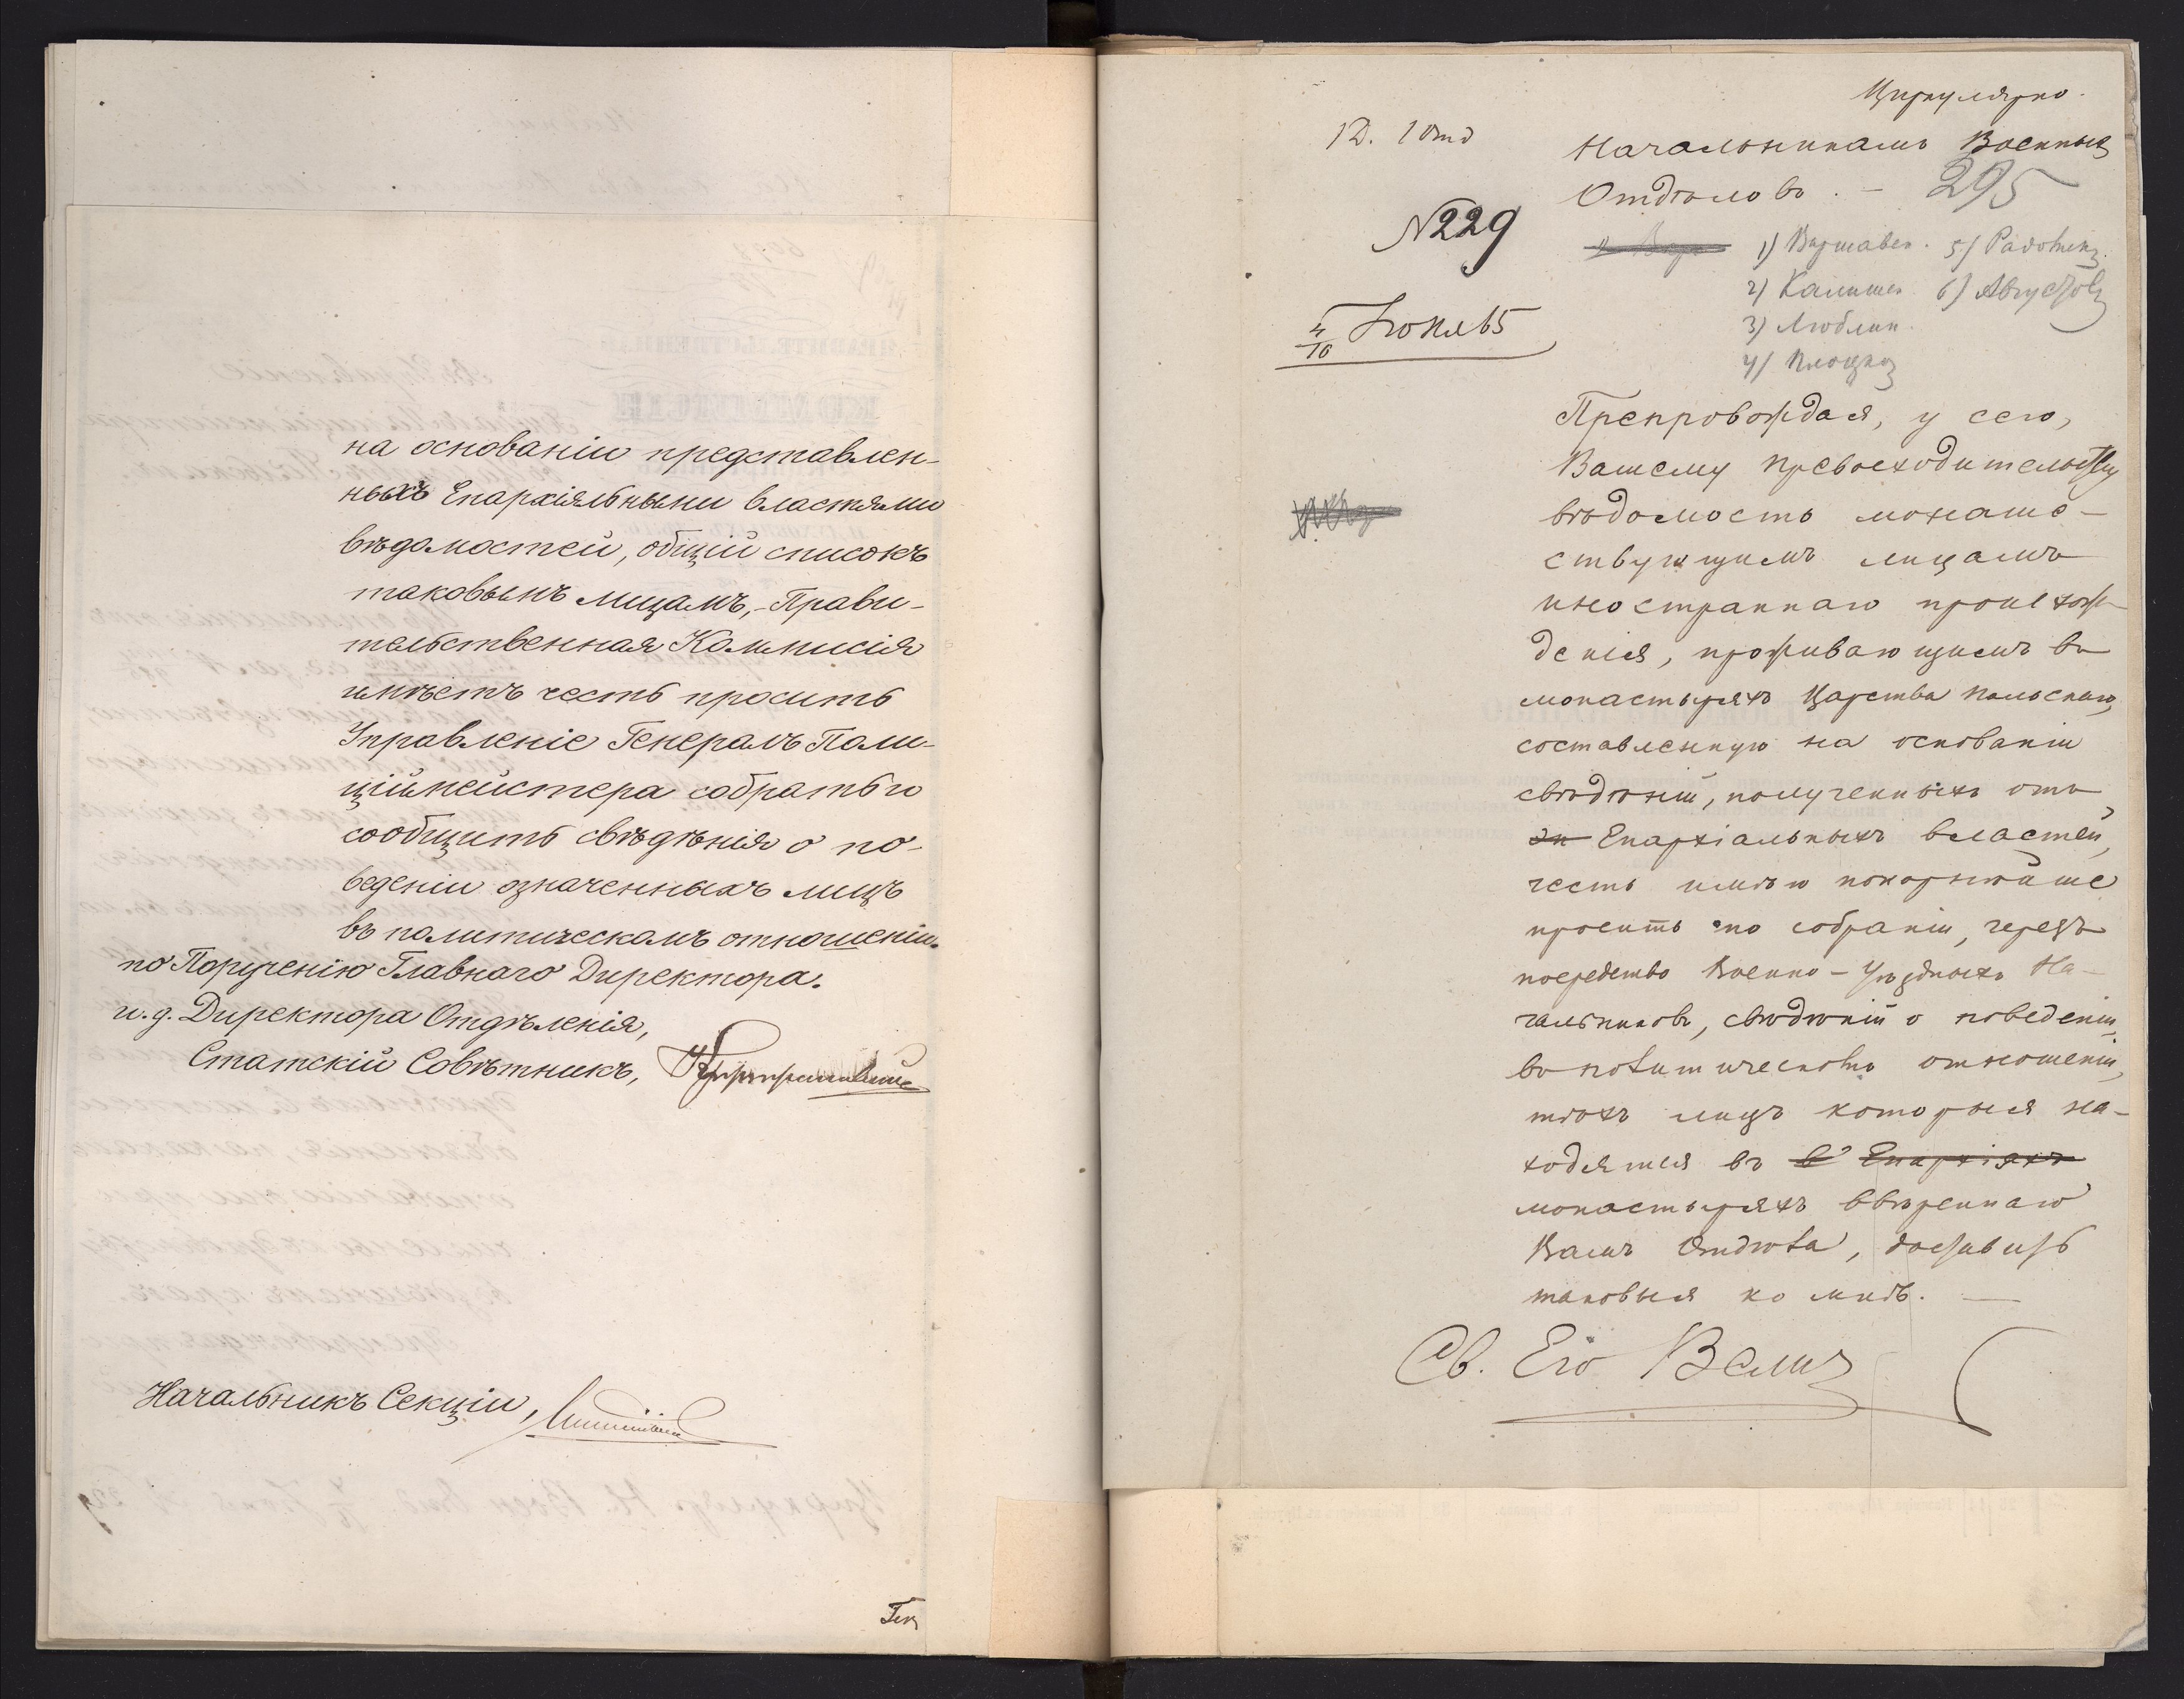 на основаніи представлен-
ныхъ Епархіяльными властями
вѣдомостей, общій списокъ
таковымъ лицамъ,- Прави-
тельственная Коммисія
имѣетъ честь просить
Управленіе Генералъ Поли-
ціймейстера собрать и
сообщить свѣдѣнія о по-
веденіи означенныхъ лицъ
въ политическомъ отношеніи.
по Порученію Главнаго Директора.
и. д. Директора Отдѣленія,
Статскій Совѣтникъ,
Начальникъ Секціи,
Циркулярно.
1 Д. 1 Отд
Начальникамъ Военныхъ
Отдѣловъ. – 295
N 229
1) Варшавск. 5) Радомск.
2) Калишск 6) Августов
3) Люблин.
4) Плоцкоз
4/16 Іюня 65
Препровождая, у сего,
Вашему Превосходительству
вѣдомость монаше-
ствующимъ лицамъ
иностраннаго происхож-
денія, проживающимъ въ
монастыряхъ Царства Польскаго,
составленную на основаніи
свѣдѣній, полученныхъ отъ
Епархіальныхъ властей,
честь имѣю покорнѣйше
просить по собраніи, чрезъ
посредство Военно-Уѣздныхъ На-
чальниковъ, свѣдѣній о поведеніи,
въ политическомъ отношеніи,
тѣхъ лицъ которыя на-
ходятся въ в Епархіяхъ
монастыряхъ ввѣреннаго
Вамъ Отдѣла, доставить
таковыя ко мнѣ. —
Св. Его Велич